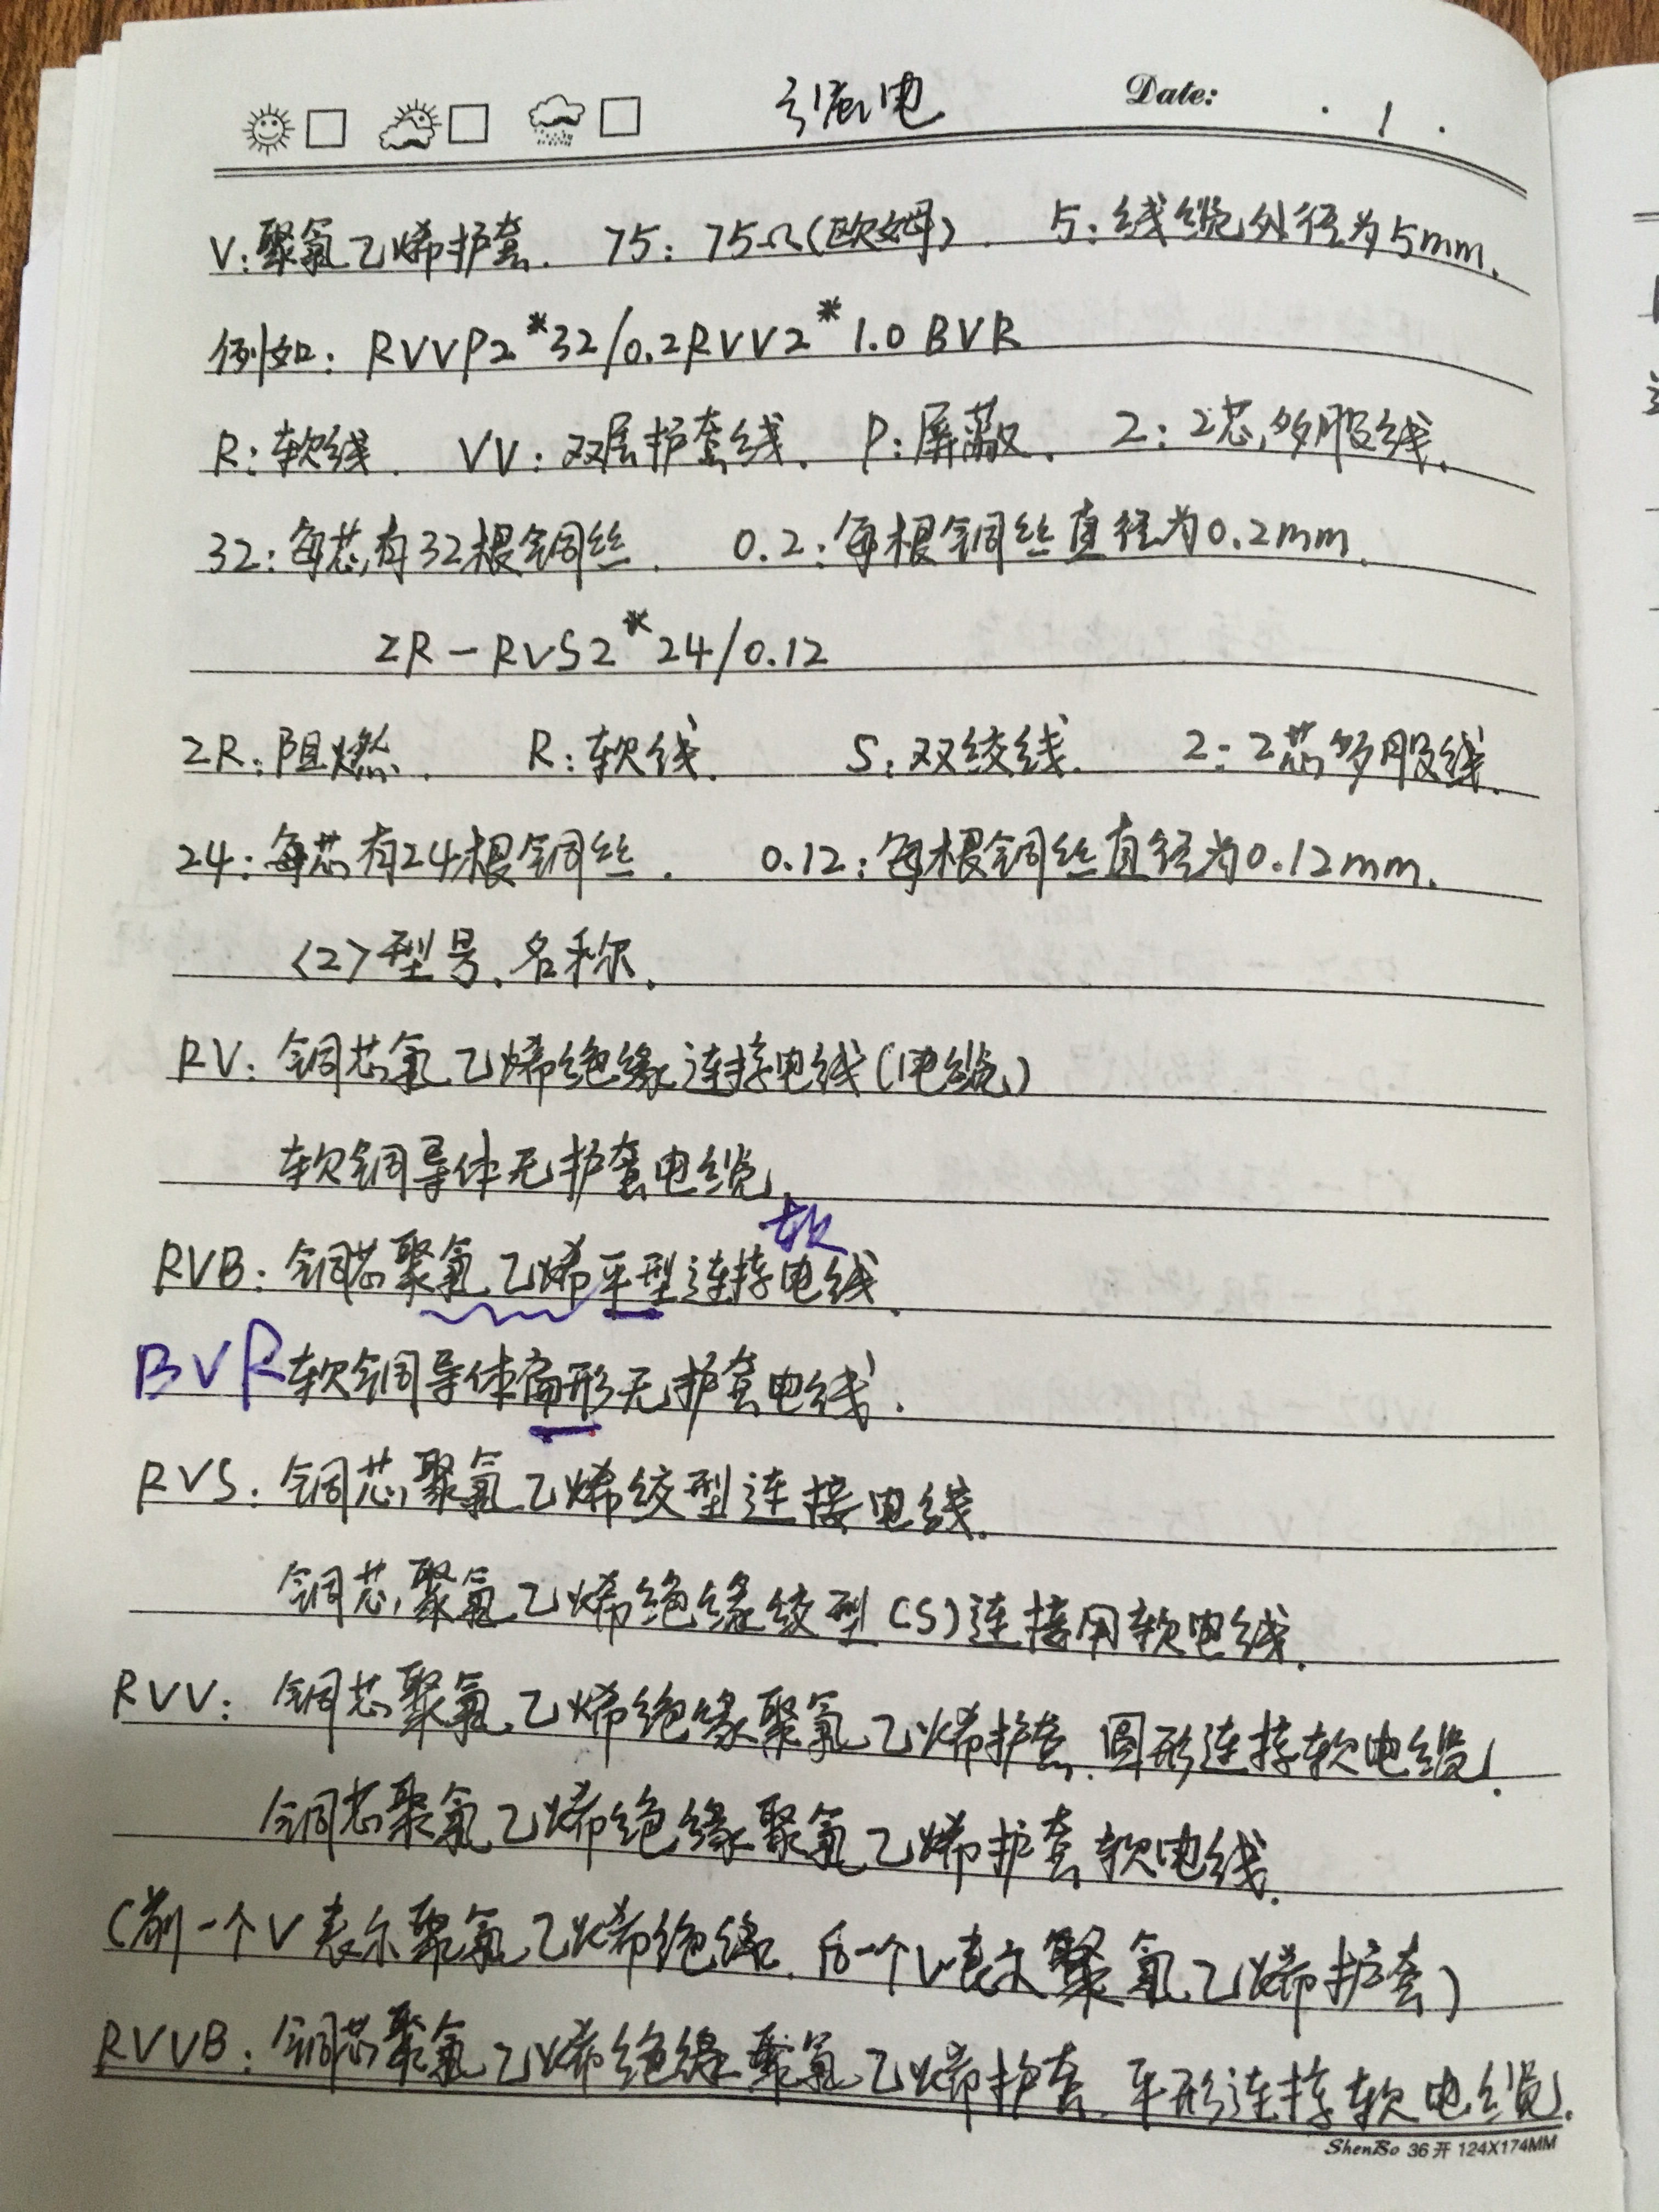 弱电 Date: . 1 .
V:聚氯乙烯护套. 75:75Ω(欧姆). 5:线缆外径为5mm.
例如:RVVP2*32/0.2RVV2*1.0 BVR
R:软线. VV:双层护套线. P:屏蔽. 2:2芯多股线.
32:每芯有32根铜丝. 0.2:每根铜丝直径为0.2mm.
ZR-RVS2*24/0.12
ZR:阻燃. R:软线. S:双绞线. 2:2芯多股线.
24:每芯有24根铜丝. 0.12:每根铜丝直径为0.12mm.
<2>型号、名称.
RV:铜芯氯乙烯绝缘连接电线(电缆)
软铜导体无护套电缆.
软
RVB:铜芯聚氯乙烯平型连接电线.
BVR软铜导体扁形无护套电线.
RVS:铜芯聚氯乙烯绞型连接电线.
铜芯聚氯乙烯绝缘绞型(S)连接用软电线.
RVV:铜芯聚氯乙烯绝缘聚氯乙烯护套.圆形连接软电缆.
铜芯聚氯乙烯绝缘聚氯乙烯护套软电线.
(前一个V表示聚氯乙烯绝缘.后一个V表示聚氯乙烯护套)
RVVB:铜芯聚氯乙烯绝缘聚氯乙烯护套.平形连接软电缆.
ShenBo 36开 124X174MM